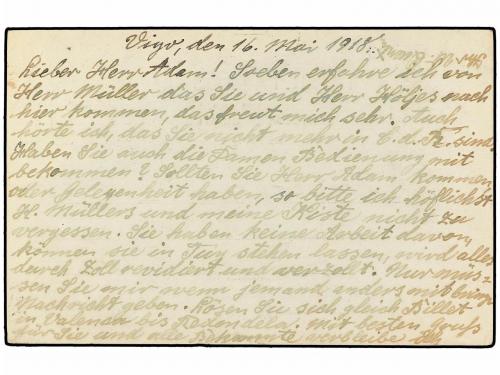 Vigo, den 16. Mai 1918.
Lieber Herr Adam! Soeben erfahre ich von
Herr Müller das Sie und Herr Höljes nach
hier kommen, das freut mich sehr. Auch
hörte ich, das Sie nicht mehr in C. d. R. sind.
Haben Sie auch die Damen Bedienung mit
bekommen? Sollten Sie Herr Adam kommen
oder Gelegenheit haben, so bitte ich höflichst
H. Müllers und meine Kiste nicht zu
vergessen. Sie haben keine Arbeit davon,
können sie in Tuy stehen lassen, wird alles
durch Zoll revidiert und verzollt. Nur müs-
sen Sie mir wenn jemand anders mitbringt
Nachricht geben. Lösen Sie sich gleich Billet
in Valenca bis Redondela. Mit besten Gruß
für Sie und alle Bekannte verbleibe ich